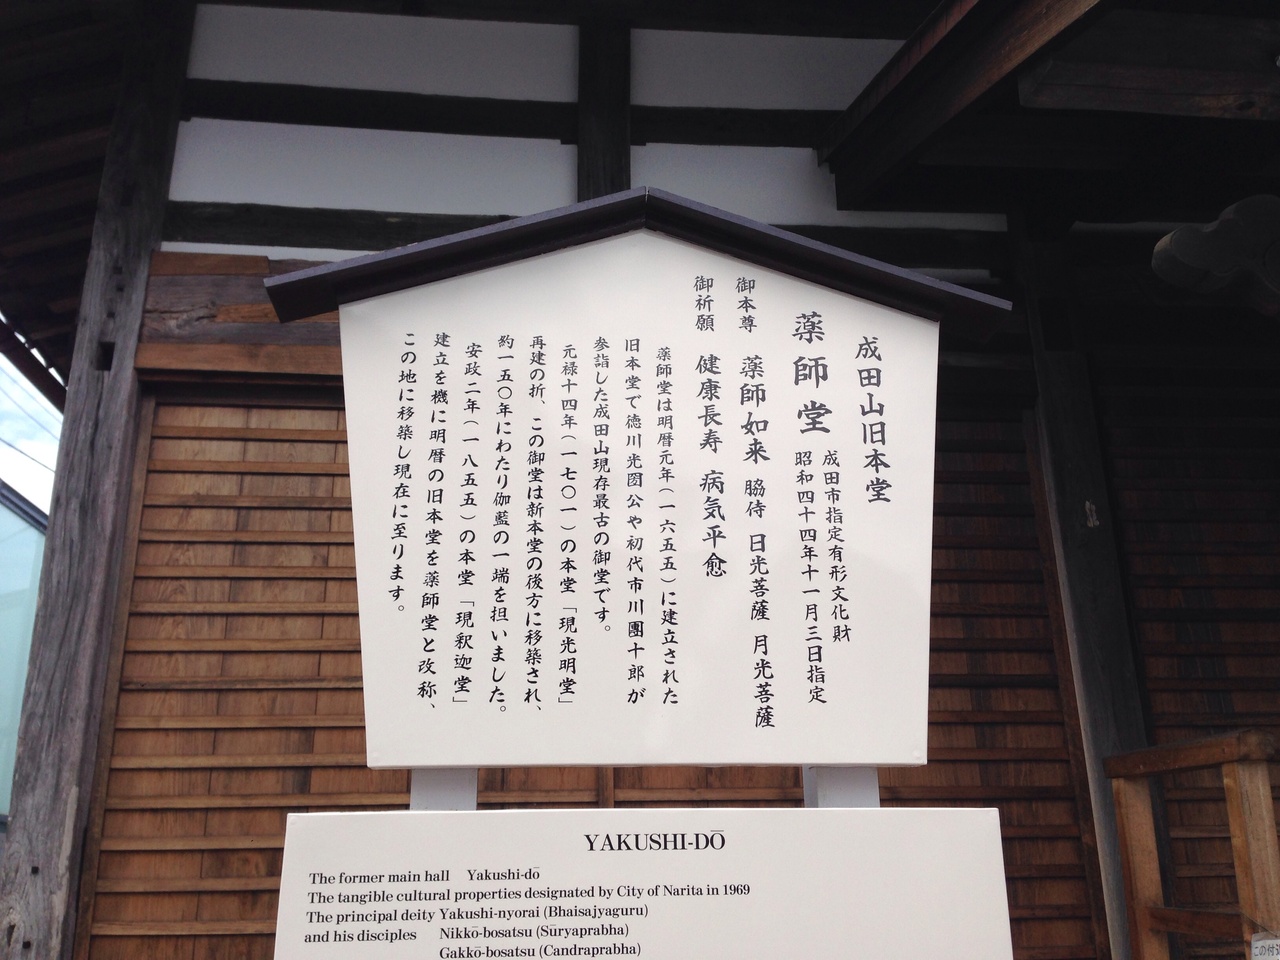 成田山旧本堂
薬師堂
成田市指定有形文化財
昭和四十四年十一月三日指定
御本尊 薬師如来 脇侍 日光菩薩 月光菩薩
御祈願 健康長寿 病気平愈
薬師堂は明暦元年(一六五五)に建立された
旧本堂で徳川光圀公や初代市川團十郎が
参詣した成田山現存最古の御堂です。
元禄十四年(一七〇一)の本堂「現光明堂」
再建の折、この御堂は新本堂の後方に移築され、
約一五〇年にわたり伽藍の一端を担いました。
安政二年(一八五五)の本堂「現釈迦堂」
建立を機に明暦の旧本堂を薬師堂と改称、
この地に移築し現在に至ります。
YAKUSHI-DŌ
The former main hall Yakushi-dō
The tangible cultural properties designated by City of Narita in 1969
The principal deity Yakushi-nyorai (Bhaisajyaguru)
and his disciples Nikkō-bosatsu (Sūryaprabha)
Gakkō-bosatsu (Candraprabha)